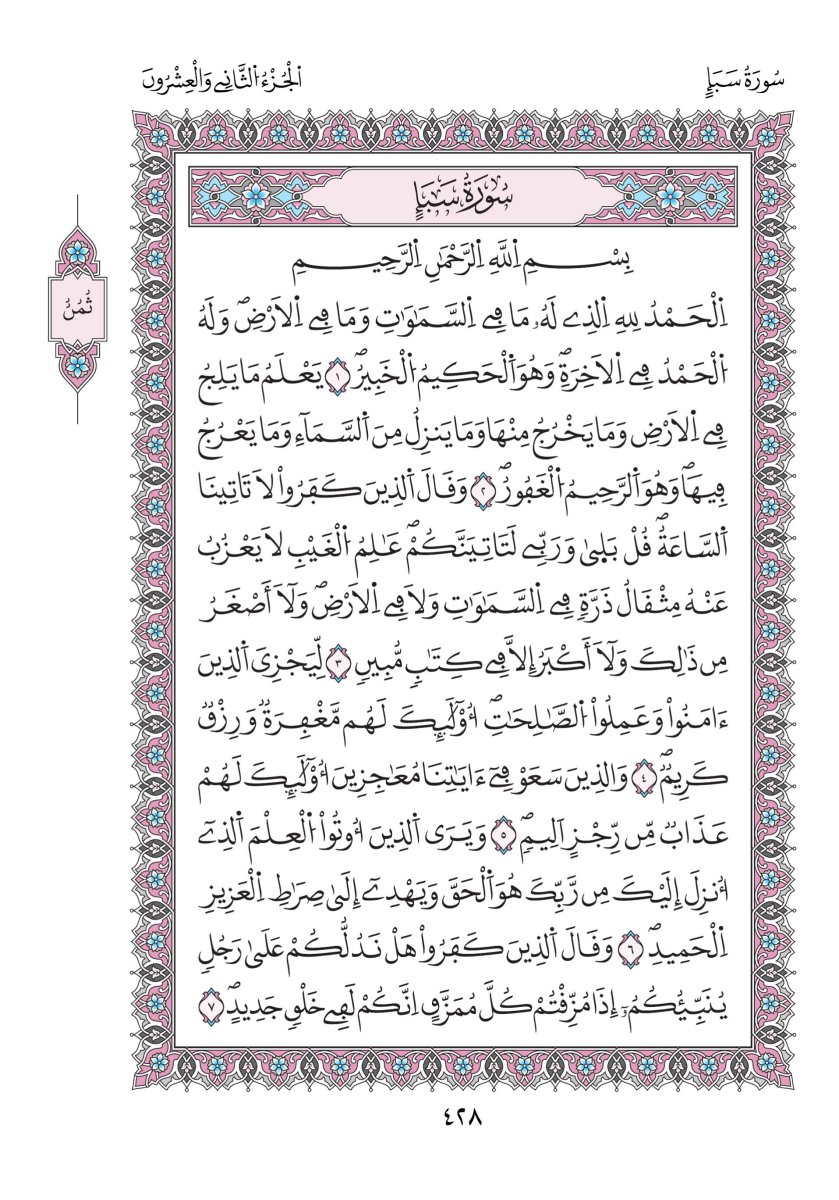 سُورَةُ سَبَإٍ
اَ۬لْجُزْءُ اُ۬لثَّانِے وَالْعِشْرُونَ
ثُمُنُ
سُورَةُ سَبَإٍ
بِسْمِ اِ۬للَّهِ اِ۬لرَّحْمَٰنِ اِ۬لرَّحِيمِ
اِ۬لْحَمْدُ لِلهِ اِ۬لذِے لَهُۥ مَا فِے اِ۬لسَّمَٰوَٰتِ وَمَا فِے اِ۬لَارْضِۖ وَلَهُ
اُ۬لْحَمْدُ فِے اِ۬لَاخِرَةِۖ وَهُوَ اَ۬لْحَكِيمُ اُ۬لْخَبِيرُۖ ١ يَعْلَمُ مَا يَلِجُ
فِے اِ۬لَارْضِ وَمَا يَخْرُجُ مِنْهَا وَمَا يَنزِلُ مِنَ اَ۬لسَّمَآءِ وَمَا يَعْرُجُ
فِيهَاۖ وَهُوَ اَ۬لرَّحِيمُ اُ۬لْغَفُورُۖ ٢ وَقَالَ اَ۬لذِينَ كَفَرُواْ لَا تَاتِينَا
اَ۬لسَّاعَةُۖ قُلْ بَلَىٰ وَرَبِّے لَتَاتِيَنَّكُمْۖ عَٰلِمُ اُ۬لْغَيْبِ لَا يَعْزُبُ
عَنْهُ مِثْقَالُ ذَرَّةٖ فِے اِ۬لسَّمَٰوَٰتِ وَلَا فِے اِ۬لَارْضِۖ وَلَآ أَصْغَرُ
مِن ذَٰلِكَ وَلَآ أَكْبَرُ إِلَّا فِے كِتَٰبٖ مُّبِينٖ ٣ لِّيَجْزِيَ اَ۬لذِينَ
ءَامَنُواْ وَعَمِلُواْ اُ۬لصَّٰلِحَٰتِۖ أُوْلَٰٓئِكَ لَهُم مَّغْفِرَةٞ وَرِزْقٞ
كَرِيمٞۖ ٤ وَالذِينَ سَعَوْ فِےٓ ءَايَٰتِنَا مُعَٰجِزِينَ أُوْلَٰٓئِكَ لَهُمْ
عَذَابٞ مِّن رِّجْزٍ اَلِيمٖۖ ٥ وَيَرَى اَ۬لذِينَ أُوتُواْ اُ۬لْعِلْمَ اَ۬لذِےٓ
أُنزِلَ إِلَيْكَ مِن رَّبِّكَ هُوَ اَ۬لْحَقَّ وَيَهْدِےٓ إِلَىٰ صِرَٰطِ اِ۬لْعَزِيزِ
اِ۬لْحَمِيدِۖ ٦ وَقَالَ اَ۬لذِينَ كَفَرُواْ هَلْ نَدُلُّكُمْ عَلَىٰ رَجُلٖ
يُنَبِّئُكُمُۥٓ إِذَا مُزِّقْتُمْ كُلَّ مُمَزَّقٍ اِنَّكُمْ لَفِے خَلْقٖ جَدِيدٖۖ ٧
٤٢٨